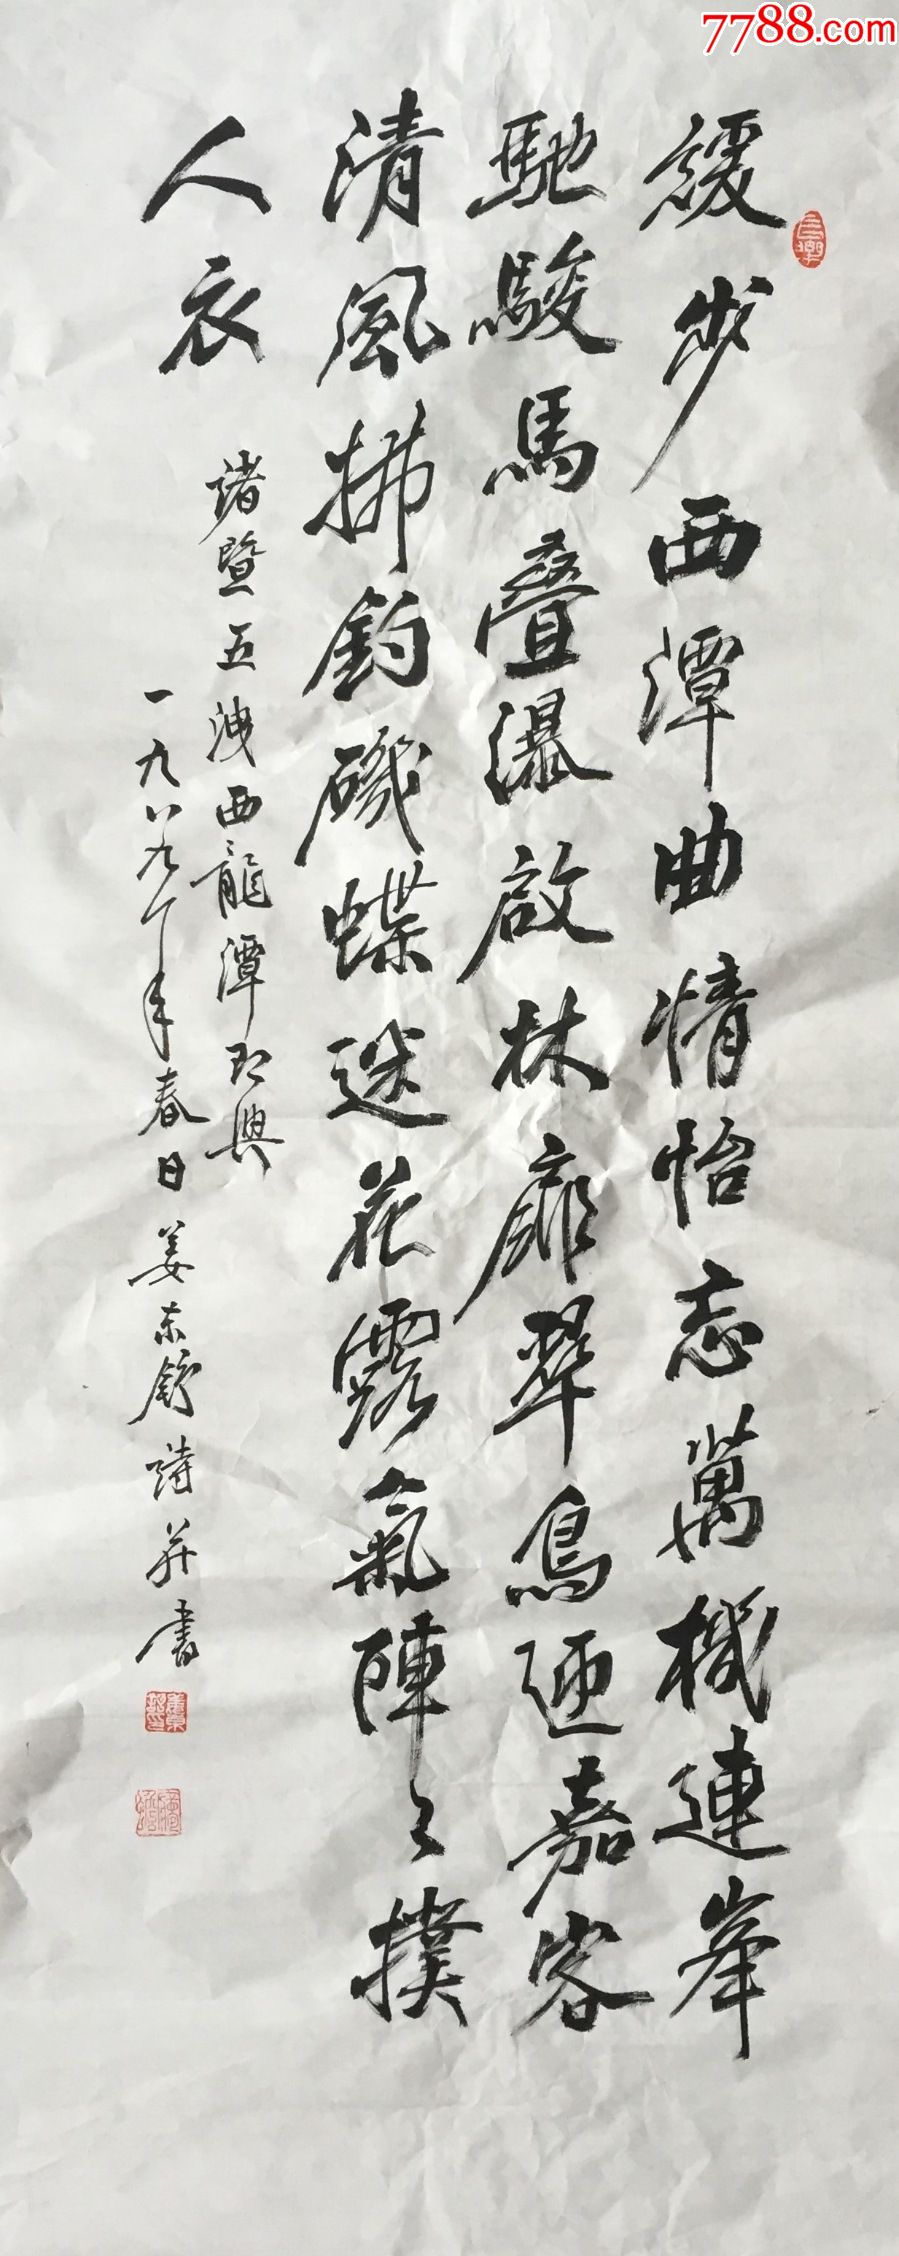 7788.com
緩步西潭曲情怡志萬機連峯
馳駿馬疊瀑啟林扉翠鳥迎嘉客
清風拂釣磯蝶迷花露氣陣々撲
人衣
諸暨五洩西龍潭即興
一九八九年春日姜东舒詩并書